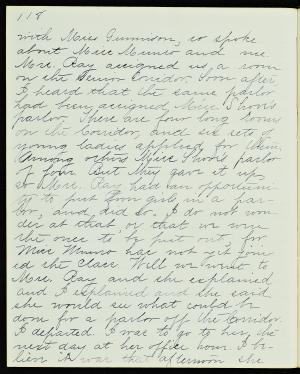 118
with Miss Gunnison, so spoke
about Miss Munro and me.
Mrs. Ray assigned us, a room
on the Senior Corridor. Soon after,
I heard that the same parlor
had been assigned, Miss
parlor. There are four long rooms
on the Corridor, and six sets of
young ladies applied for them.
Among others Miss parlor
of four. But they gave it up,
so Mrs. Ray had an opportuni-
ty to put four girls in a par-
lor, and did so. I do not won-
der at that or that we were
the ones to be put out, for
Miss Munro has not yet join
ed the class. Well we went to
Mrs. Ray and she explained
and I explained and she said
she would see what could be
done for a parlor off the Corridor.
I departed. I was to go to her, the
next day at her office hour. I be-
lieve it was that afternoon she